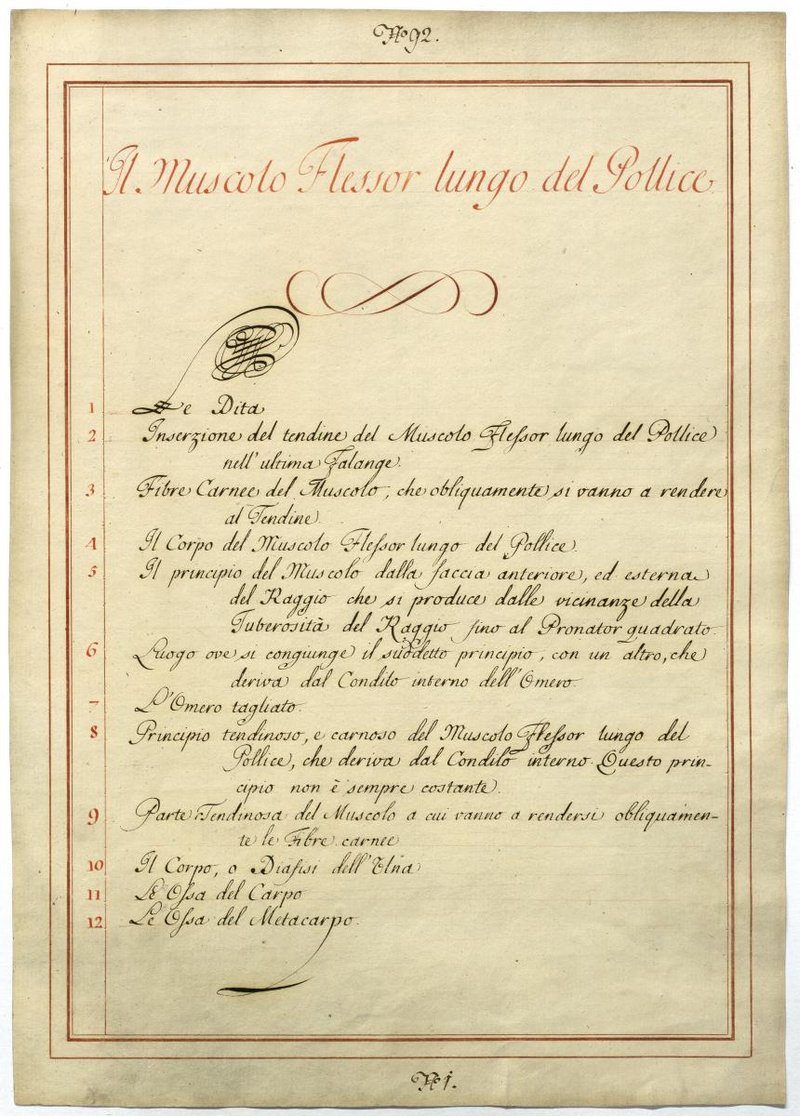 Nº 92.
Il Muscolo Flessor lungo del Pollice
1 Le Dita
2 Inserzione del tendine del Muscolo Flessor lungo del Pollice
nell'ultima Falange.
3 Fibre Carnee del Muscolo, che obliquamente si vanno a rendere
al Tendine.
4 Il Corpo del Muscolo Flessor lungo del Pollice.
5 Il principio del Muscolo dalla faccia anteriore, ed esterna
del Raggio che si produce dalle vicinanze della
Tuberosità del Raggio sino al Pronator quadrato.
6 Luogo ove si congiunge il suddetto principio, con un altro, che
deriva dal Condilo interno dell'Omero.
7 L'Omero tagliato.
8 Principio tendinoso, e carnoso del Muscolo Flessor lungo del
Pollice, che deriva dal Condilo interno. Questo prin-
cipio non è sempre costante.
9 Parte Tendinosa del Muscolo a cui vanno a rendersi obliquamen-
te le Fibre carnee
10 Il Corpo, o Diafisi dell'Ulna
11 Le Ossa del Carpo
12 Le Ossa del Metacarpo.
Nº 1.